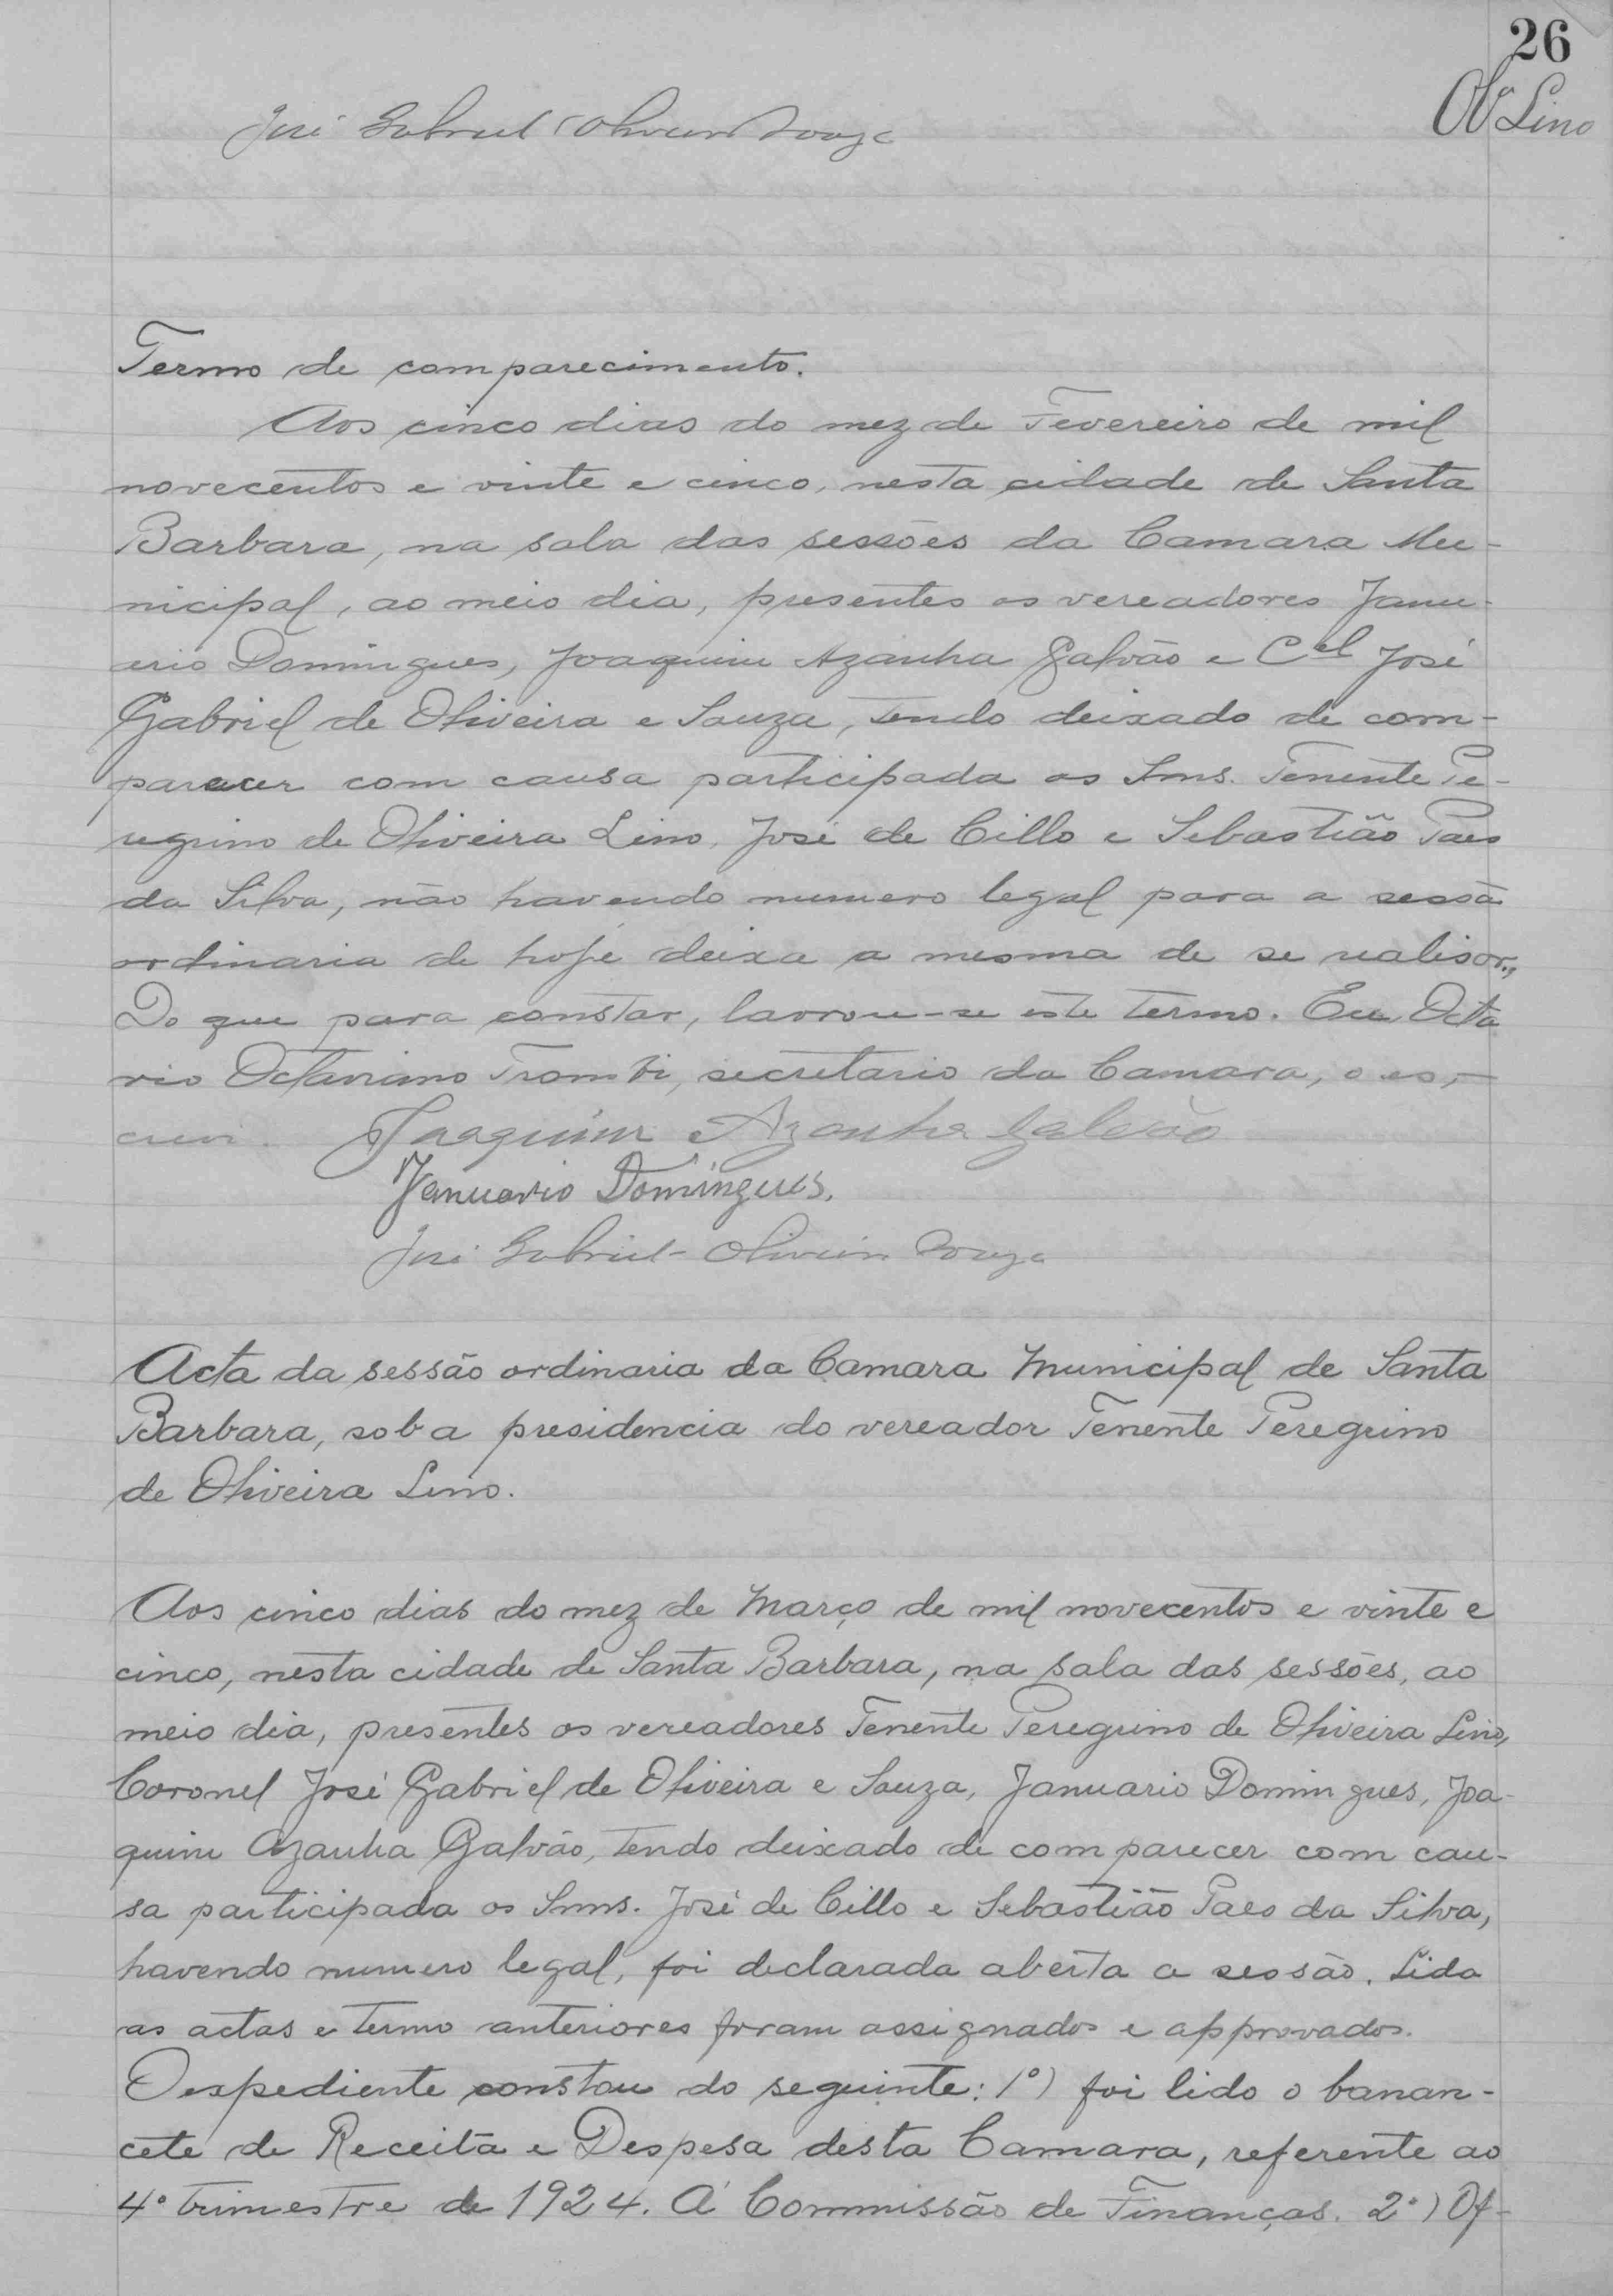 26
Ol. Lino
José Gabriel Oliveira Souza
Termo de comparecimento.
Aos cinco dias do mez de Fevereiro de mil
novecentos e vinte e cinco, nesta cidade de Santa
Barbara, na sala das sessões da Camara Mu-
nicipal, ao meio dia, presentes os vereadores Janu-
ario Domingues, Joaquim Azanha Galvão e Cel José
Gabriel de Oliveira e Souza, tendo deixado de com-
parecer com causa participada os Snrs. Tenente Pe-
regrino de Oliveira Lino, José de Cillo e Sebastião Paes
da Silva, não havendo numero legal para a sessã
ordinaria de hoje deixa a mesma de se realisar.,
Do que para constar, lavrou-se este termo. Eu Octa
vio Octaviano Trombi, secretario da Camara, o es,-
crevi. Joaquim Azanha Galvão
Januario Domingues.
José Gabriel Oliveira Souza
Acta da sessão ordinaria da Camara Municipal de Santa
Barbara, sob a presidencia do vereador Tenente Peregrino
de Oliveira Lino.
Aos cinco dias do mez de Março de mil novecentos e vinte e
cinco, nesta cidade de Santa Barbara, na sala das sessões, ao
meio dia, presentes os vereadores Tenente Peregrino de Oliveira Lino,
Coronel José Gabriel de Oliveira e Souza, Januario Domingues, Joa-
quim Azanha Galvão, tendo deixado de comparecer com cau-
sa participada os Snns. José de Cillo e Sebastião Paes da Silva,
havendo numero legal, foi declarada aberta a sessão. Lida
as actas e termo anteriores foram assignados e approvados.
O expediente constou do seguinte: 1º) foi lido o banan-
cete de Receita e Despesa desta Camara, referente ao
4º trimestre de 1924. Á Commissão de Finanças. 2º) Of-